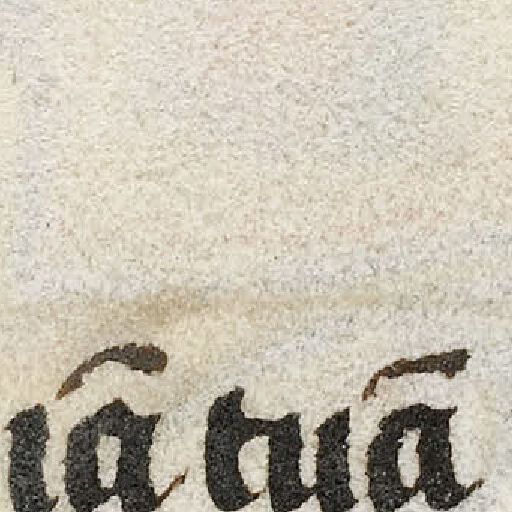 iā tuā